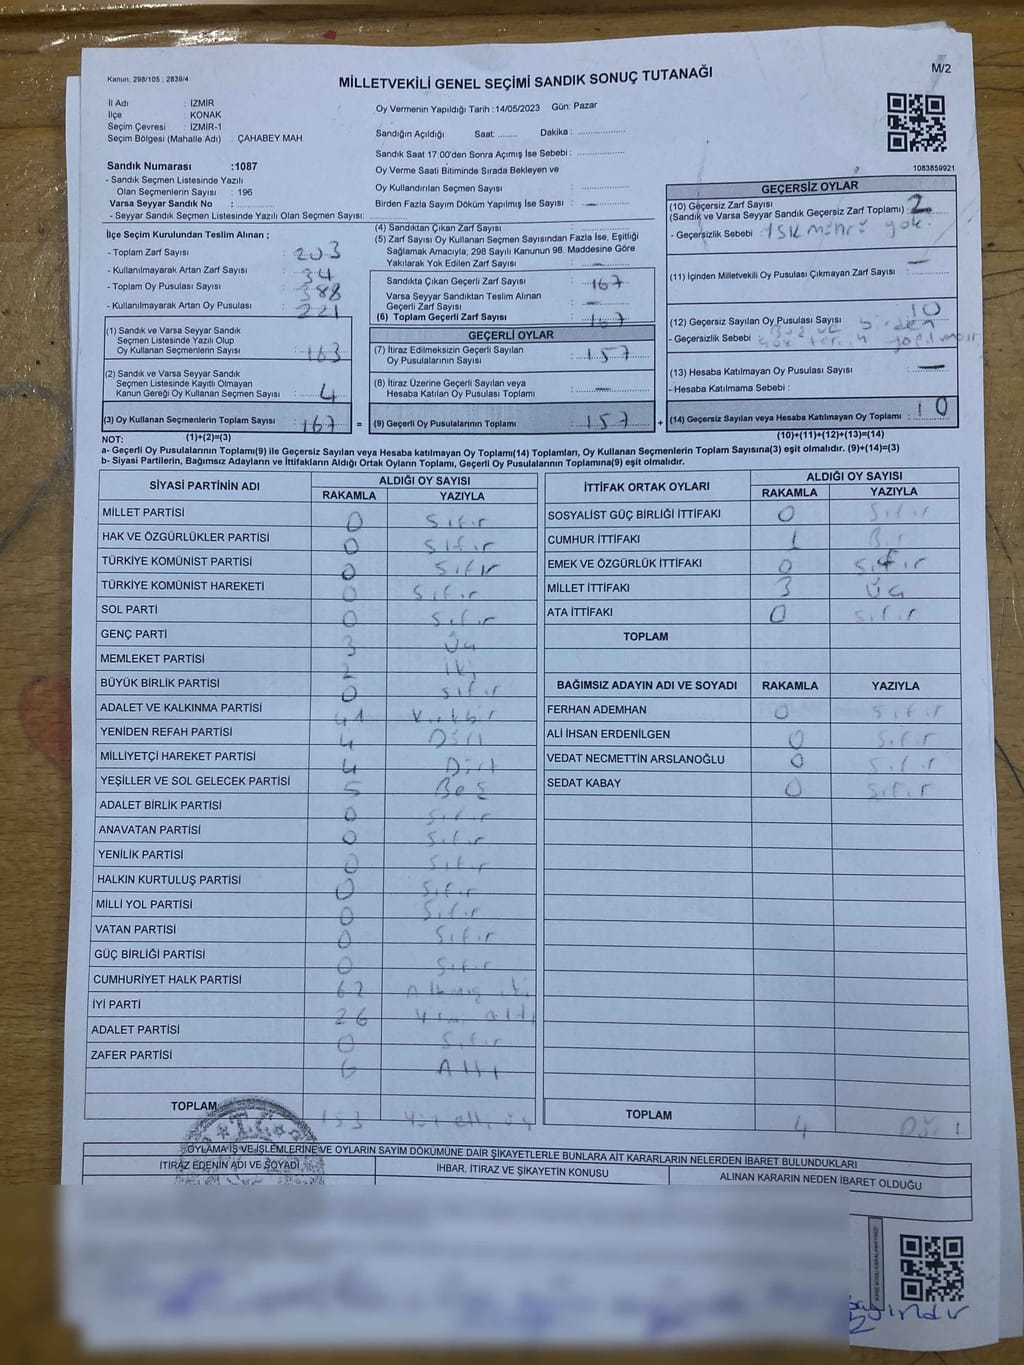 Kanun: 298/105 , 2839/4
MİLLETVEKİLİ GENEL SEÇİMİ SANDIK SONUÇ TUTANAĞI
M/2
İl Adı : İZMİR
İlçe : KONAK
Seçim Çevresi : İZMİR-1
Seçim Bölgesi (Mahalle Adı) : ÇAHABEY MAH.
Sandık Numarası :1087
- Sandık Seçmen Listesinde Yazılı
Olan Seçmenlerin Sayısı : 196
Varsa Seyyar Sandık No :
- Seyyar Sandık Seçmen Listesinde Yazılı Olan Seçmen Sayısı:
Oy Vermenin Yapıldığı Tarih :14/05/2023 Gün: Pazar
Sandığın Açıldığı Saat: Dakika :
Sandık Saat 17:00'den Sonra Açımış İse Sebebi :
Oy Verme Saati Bitiminde Sırada Bekleyen ve
Oy Kullandırılan Seçmen Sayısı :
Birden Fazla Sayım Döküm Yapılmış İse Sayısı : —
1083859921
İlçe Seçim Kurulundan Teslim Alınan ;
- Toplam Zarf Sayısı : 203
- Kullanılmayarak Artan Zarf Sayısı : 34
- Toplam Oy Pusulası Sayısı : 388
- Kullanılmayarak Artan Oy Pusulası : 221
(1) Sandık ve Varsa Seyyar Sandık
Seçmen Listesinde Yazılı Olup
Oy Kullanan Seçmenlerin Sayısı : 163
(2) Sandık ve Varsa Seyyar Sandık
Seçmen Listesinde Kayıtlı Olmayan
Kanun Gereği Oy Kullanan Seçmen Sayısı : 4
(3) Oy Kullanan Seçmenlerin Toplam Sayısı : 167 =
(1)+(2)=(3)
(4) Sandıktan Çıkan Zarf Sayısı :
(5) Zarf Sayısı Oy Kullanan Seçmen Sayısından Fazla İse, Eşitliği
Sağlamak Amacıyla; 298 Sayılı Kanunun 98. Maddesine Göre
Yakılarak Yok Edilen Zarf Sayısı : —
Sandıkta Çıkan Geçerli Zarf Sayısı : 167
Varsa Seyyar Sandıktan Teslim Alınan
Geçerli Zarf Sayısı : —
(6) Toplam Geçerli Zarf Sayısı : 167
GEÇERLİ OYLAR
(7) İtiraz Edilmeksizin Geçerli Sayılan
Oy Pusulalarının Sayısı : 157
(8) İtiraz Üzerine Geçerli Sayılan veya
Hesaba Katılan Oy Pusulası Toplamı : —
(9) Geçerli Oy Pusulalarının Toplamı : 157 +
GEÇERSİZ OYLAR
(10) Geçersiz Zarf Sayısı
(Sandık ve Varsa Seyyar Sandık Geçersiz Zarf Toplamı) : 2
- Geçersizlik Sebebi : YSK mührü yok.
(11) İçinden Milletvekili Oy Pusulası Çıkmayan Zarf Sayısı : —
(12) Geçersiz Sayılan Oy Pusulası Sayısı : 10
- Geçersizlik Sebebi birden
(13) Hesaba Katılmayan Oy Pusulası Sayısı : —
- Hesaba Katılmama Sebebi :
(14) Geçersiz Sayılan veya Hesaba Katılmayan Oy Toplamı : 10
(10)+(11)+(12)+(13)=(14)
NOT:
a- Geçerli Oy Pusulalarının Toplamı(9) ile Geçersiz Sayılan veya Hesaba katılmayan Oy Toplamı(14) Toplamları, Oy Kullanan Seçmenlerin Toplam Sayısına(3) eşit olmalıdır. (9)+(14)=(3)
b- Siyasi Partilerin, Bağımsız Adayların ve İttifakların Aldığı Ortak Oyların Toplamı, Geçerli Oy Pusulalarının Toplamına(9) eşit olmalıdır.
SİYASİ PARTİNİN ADI ALDIĞI OY SAYISI
RAKAMLA YAZIYLA
MİLLET PARTİSİ 0 Sıfır
HAK VE ÖZGÜRLÜKLER PARTİSİ 0 Sıfır
TÜRKİYE KOMÜNİST PARTİSİ 0 Sıfır
TÜRKİYE KOMÜNİST HAREKETİ 0 Sıfır
SOL PARTİ 0 Sıfır
GENÇ PARTİ 3 Üç
MEMLEKET PARTİSİ 2 İki
BÜYÜK BİRLİK PARTİSİ 0 Sıfır
ADALET VE KALKINMA PARTİSİ 41 Kırkbir
YENİDEN REFAH PARTİSİ 4 Dört
MİLLİYETÇİ HAREKET PARTİSİ 4 Dört
YEŞİLLER VE SOL GELECEK PARTİSİ 5 Beş
ADALET BİRLİK PARTİSİ 0 Sıfır
ANAVATAN PARTİSİ 0 Sıfır
YENİLİK PARTİSİ 0 Sıfır
HALKIN KURTULUŞ PARTİSİ 0 Sıfır
MİLLİ YOL PARTİSİ 0 Sıfır
VATAN PARTİSİ 0 Sıfır
GÜÇ BİRLİĞİ PARTİSİ 0 Sıfır
CUMHURİYET HALK PARTİSİ 62 Altmış iki
İYİ PARTİ 26 Yirmi altı
ADALET PARTİSİ 0 Sıfır
ZAFER PARTİSİ 6 Altı
TOPLAM 153 Yüz elli üç
İTTİFAK ORTAK OYLARI ALDIĞI OY SAYISI
RAKAMLA YAZIYLA
SOSYALİST GÜÇ BİRLİĞİ İTTİFAKI 0 Sıfır
CUMHUR İTTİFAKI 1 Bir
EMEK VE ÖZGÜRLÜK İTTİFAKI 0 Sıfır
MİLLET İTTİFAKI 3 Üç
ATA İTTİFAKI 0 Sıfır
TOPLAM
BAĞIMSIZ ADAYIN ADI VE SOYADI RAKAMLA YAZIYLA
FERHAN ADEMHAN 0 Sıfır
ALİ İHSAN ERDENİLGEN 0 Sıfır
VEDAT NECMETTİN ARSLANOĞLU 0 Sıfır
SEDAT KABAY 0 Sıfır
TOPLAM 4 Dört
T.C.
OYLAMA İŞ VE İŞLEMLERİNE VE OYLARIN SAYIM DÖKÜMÜNE DAİR ŞİKAYETLERLE BUNLARA AİT KARARLARIN NELERDEN İBARET BULUNDUKLARI
İTİRAZ EDENİN ADI VE SOYADI İHBAR, İTİRAZ VE ŞİKAYETİN KONUSU ALINAN KARARIN NEDEN İBARET OLDUĞU